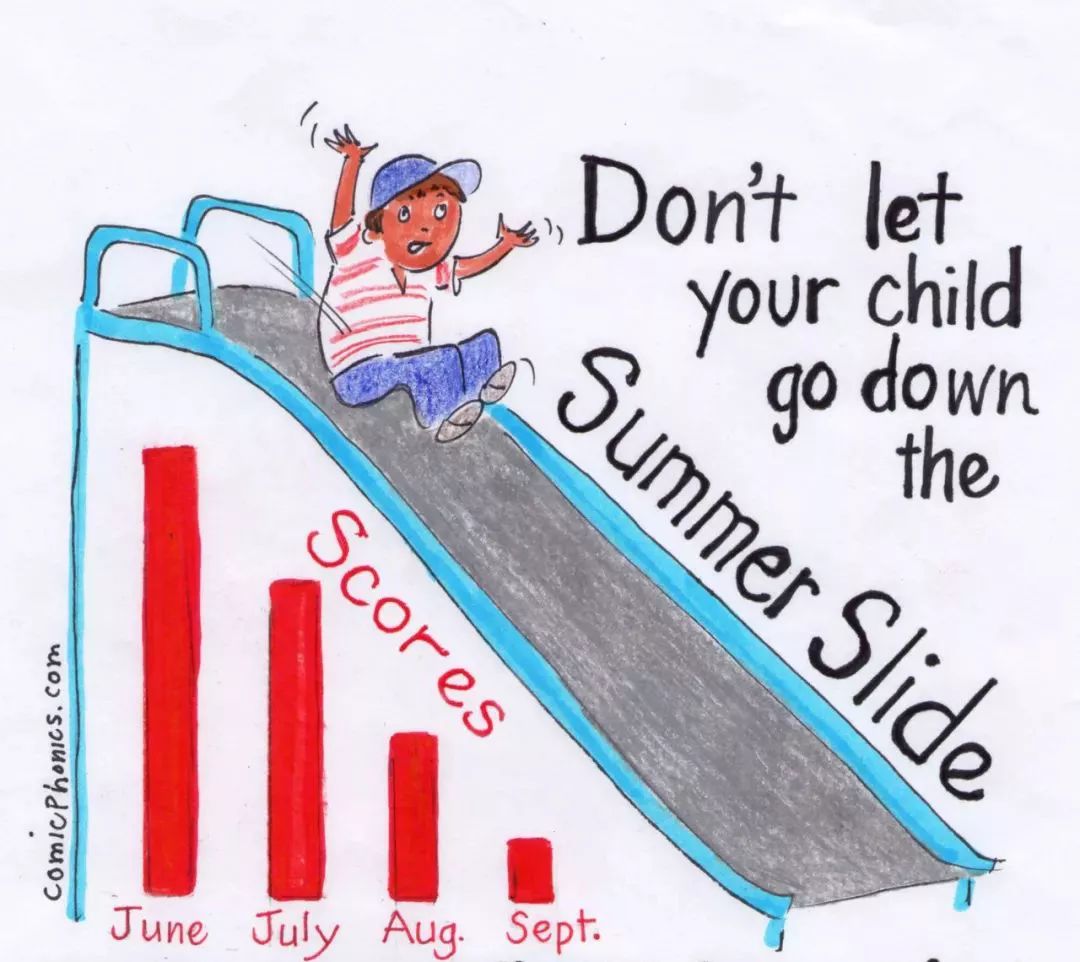 Don't let
your child
go down
the
Summer Slide
Scores
June July Aug. Sept.
ComicPhonics.com